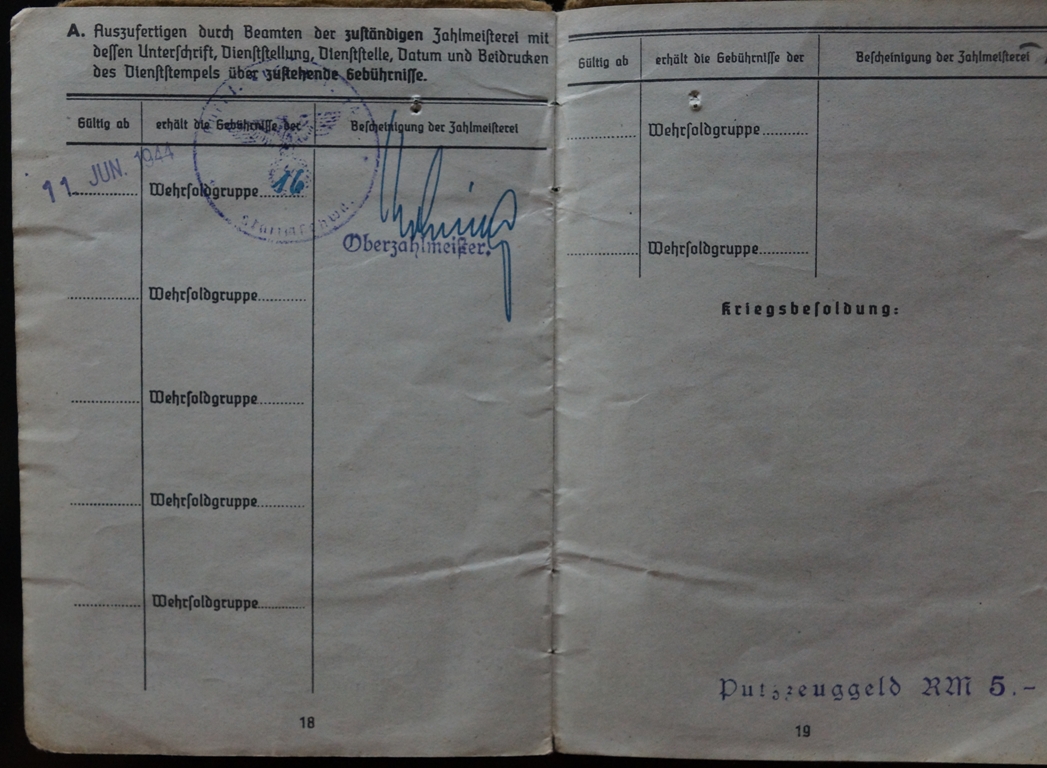 A. Auszufertigen durch Beamten der zuständigen Zahlmeisterei mit
dessen Unterschrift, Dienststellung, Dienststelle, Datum und Beidrucken
des Dienststempels über zustehende Gebührnisse.
Gültig ab erhält die Gebührnisse der Bescheinigung der Zahlmeisterei
11 JUN. 1944 Wehrsoldgruppe 16
Oberzahlmeister.
Wehrsoldgruppe
Wehrsoldgruppe
Wehrsoldgruppe
Wehrsoldgruppe
18
Gültig ab erhält die Gebührnisse der Bescheinigung der Zahlmeisterei
Wehrsoldgruppe
Wehrsoldgruppe
Kriegsbesoldung:
Putzzeuggeld RM 5.-
19